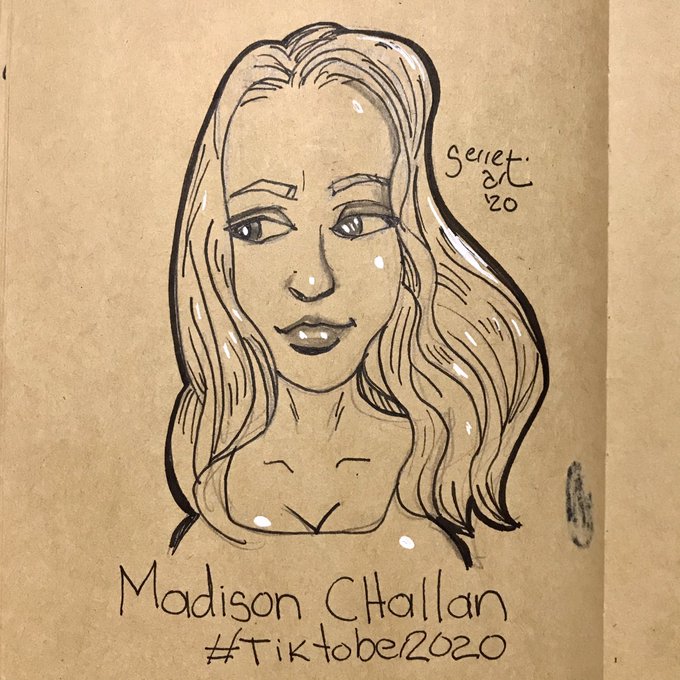 Serret
art
'20
Madison CHallan
#Tiktober2020